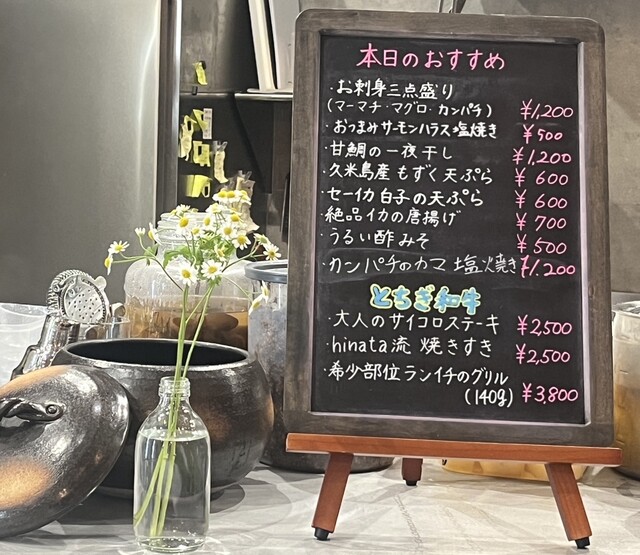 本日のおすすめ
・お刺身三点盛り
(マーマチ・マグロ・カンパチ) ¥1,200
・おつまみサーモンハラス塩焼き ¥500
・甘鯛の一夜干し ¥1,200
・久米島産もずく天ぷら ¥600
・セーイカ白子の天ぷら ¥600
・絶品イカの唐揚げ ¥700
・うるい酢みそ ¥500
・カンパチのカマ塩焼き ¥1,200
とちぎ和牛
・大人のサイコロステーキ ¥2,500
・hinata流 焼きすき ¥2,500
・希少部位ランイチのグリル
(140g) ¥3,800